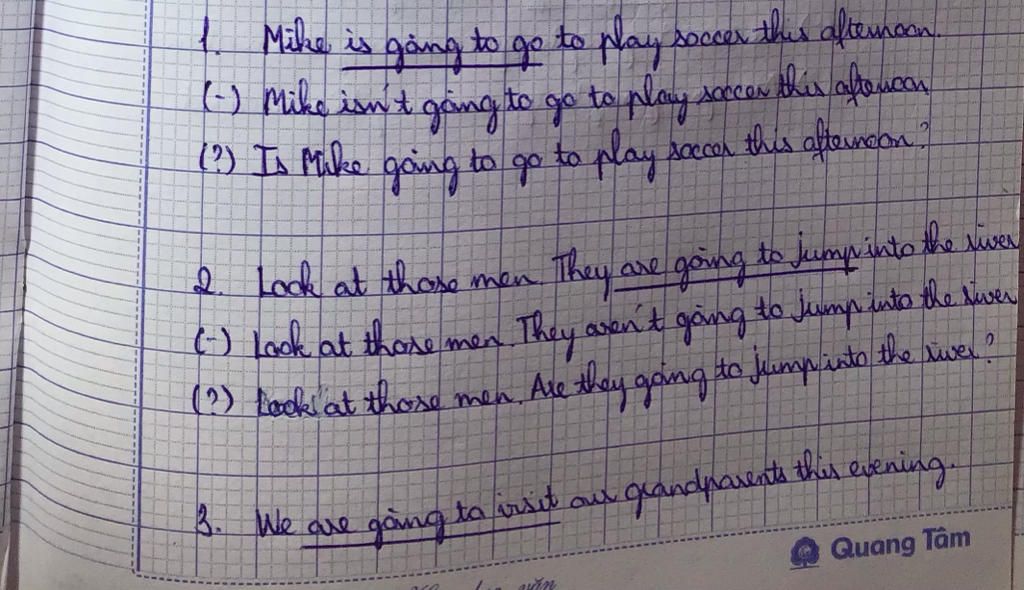 1. Mike is going to go to play soccer this afternoon.
(-) Mike isn't going to go to play soccer this afternoon
(?) Is Mike going to go to play soccer this afternoon?
2. Look at those men They are going to jump into the river
(-) Look at those men They aren't going to jump into the river
(?) Look at those men. Are they going to jump into the river?
3. We are going to visit our grandparents this evening.
Quang Tâm
văn